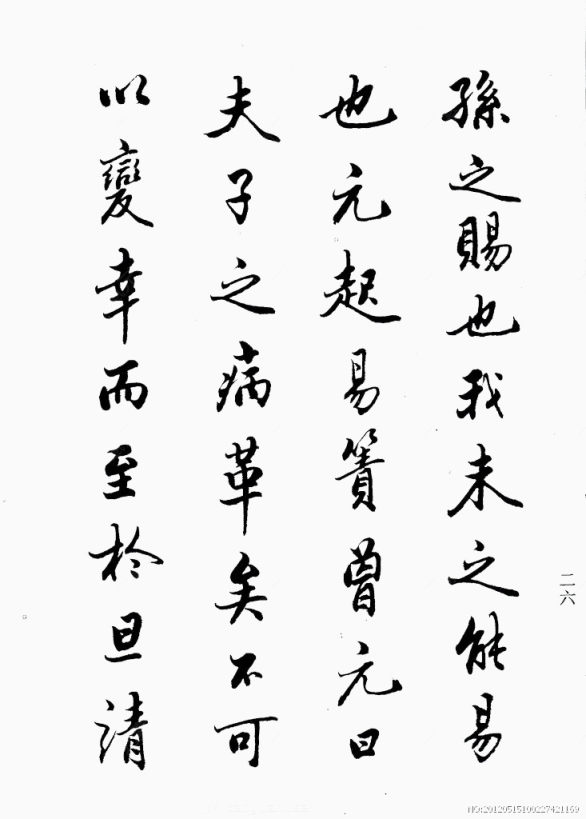 孫之賜也我未之能易
也元起易簀曾元曰
夫子之病革矣不可
以變幸而至於旦請
二六
NO:20120515100227421169